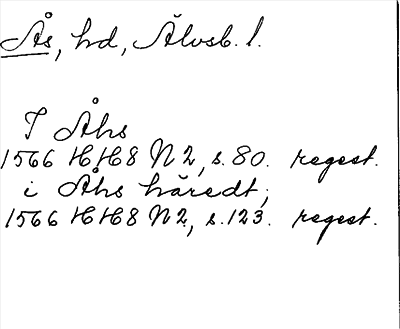 Ås, hd, Älvsb. l.
I Åhs
1566 HH8 N2, s. 80. regest.
i Åhs häredt;
1566 HH8 N2, s. 123. regest.